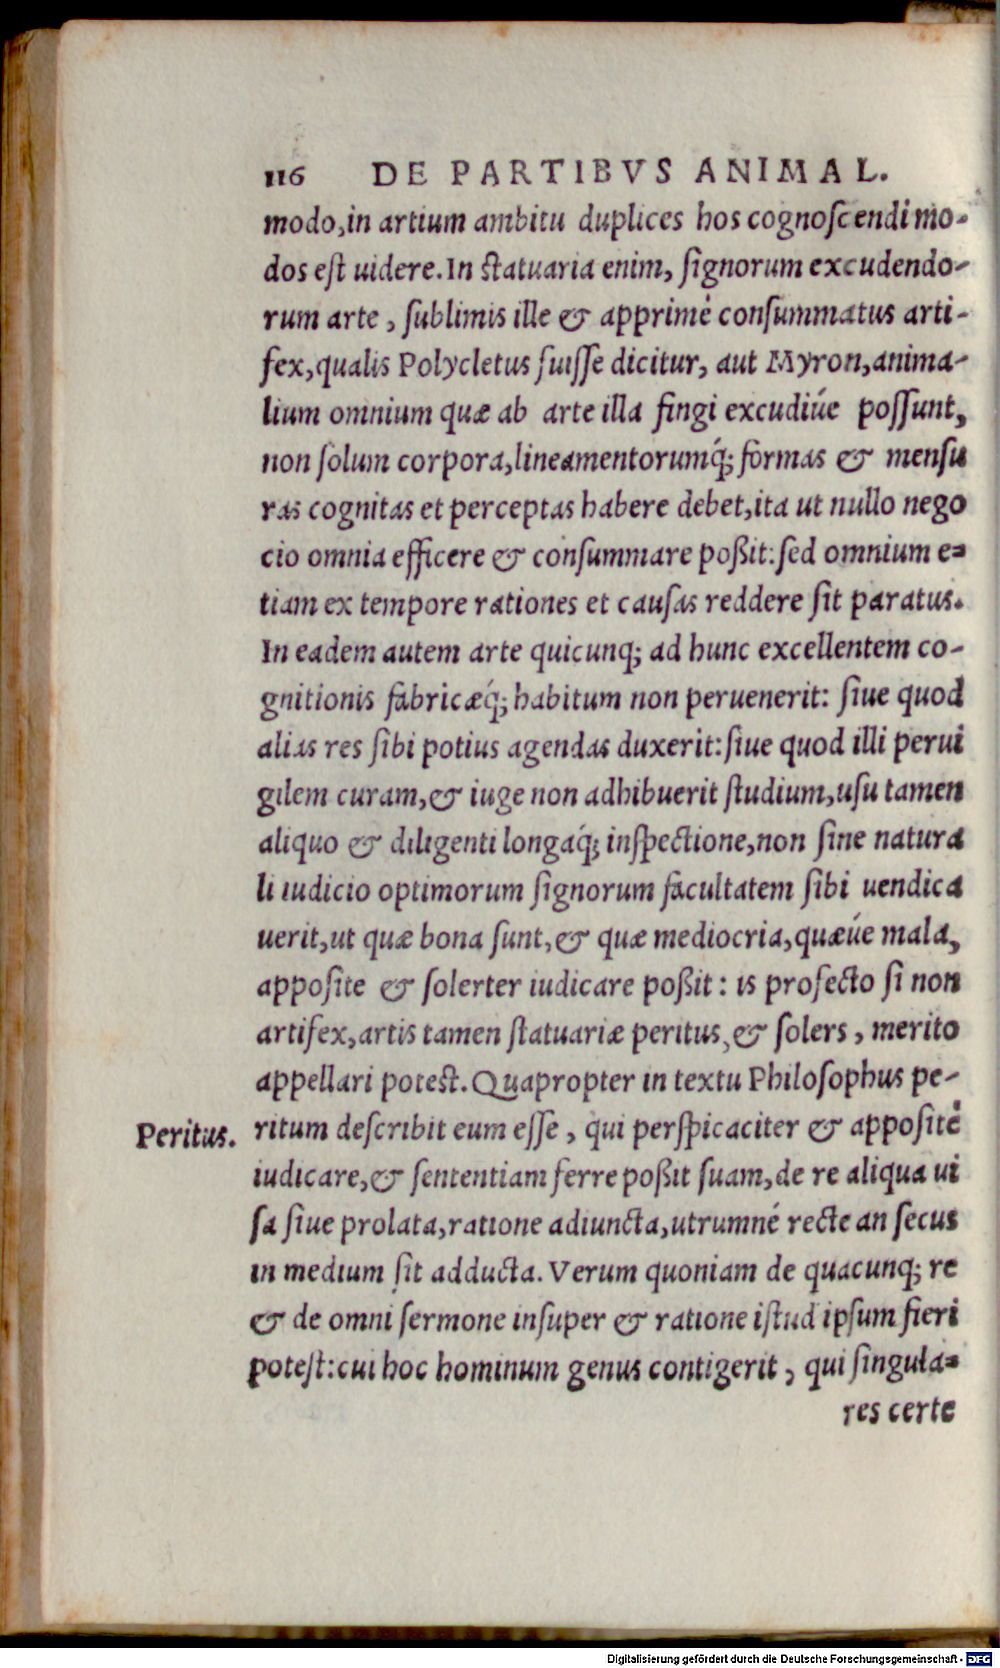 116 DE PARTIBVS ANIMAL.
modo, in artium ambitu duplices hos cognoscendi mo-
dos est uidere. In statuaria enim, signorum excudendo-
rum arte, sublimis ille & apprimè consummatus arti-
fex, qualis Polycletus fuisse dicitur, aut Myron, anima-
lium omnium quæ ab arte illa fingi excudiúe possunt,
non solum corpora, lineamentorumq́; formas & mensu
ras cognitas et perceptas habere debet, ita ut nullo nego
cio omnia efficere & consummare poßit: sed omnium e-
tiam ex tempore rationes et causas reddere sit paratus.
In eadem autem arte quicunq; ad hunc excellentem co-
gnitionis fabricæq́; habitum non peruenerit: siue quod
alias res sibi potius agendas duxerit: siue quod illi perui
gilem curam, & iuge non adhibuerit studium, usu tamen
aliquo & diligenti longaq́; inspectione, non sine natura
li iudicio optimorum signorum facultatem sibi uendica
uerit, ut quæ bona sunt, & quæ mediocria, quæúe mala,
apposite & solerter iudicare poßit: is profecto si non
artifex, artis tamen statuariæ peritus, & solers, merito
appellari potest. Quapropter in textu Philosophus pe-
Peritus. ritum describit eum esse, qui perspicaciter & appositè
iudicare, & sententiam ferre poßit suam, de re aliqua ui
sa siue prolata, ratione adiuncta, utrumné recte an secus
in medium sit adducta. Verum quoniam de quacunq; re
& de omni sermone insuper & ratione istud ipsum fieri
potest: cui hoc hominum genus contigerit, qui singula-
res certe
Digitalisierung gefördert durch die Deutsche Forschungsgemeinschaft - DFG